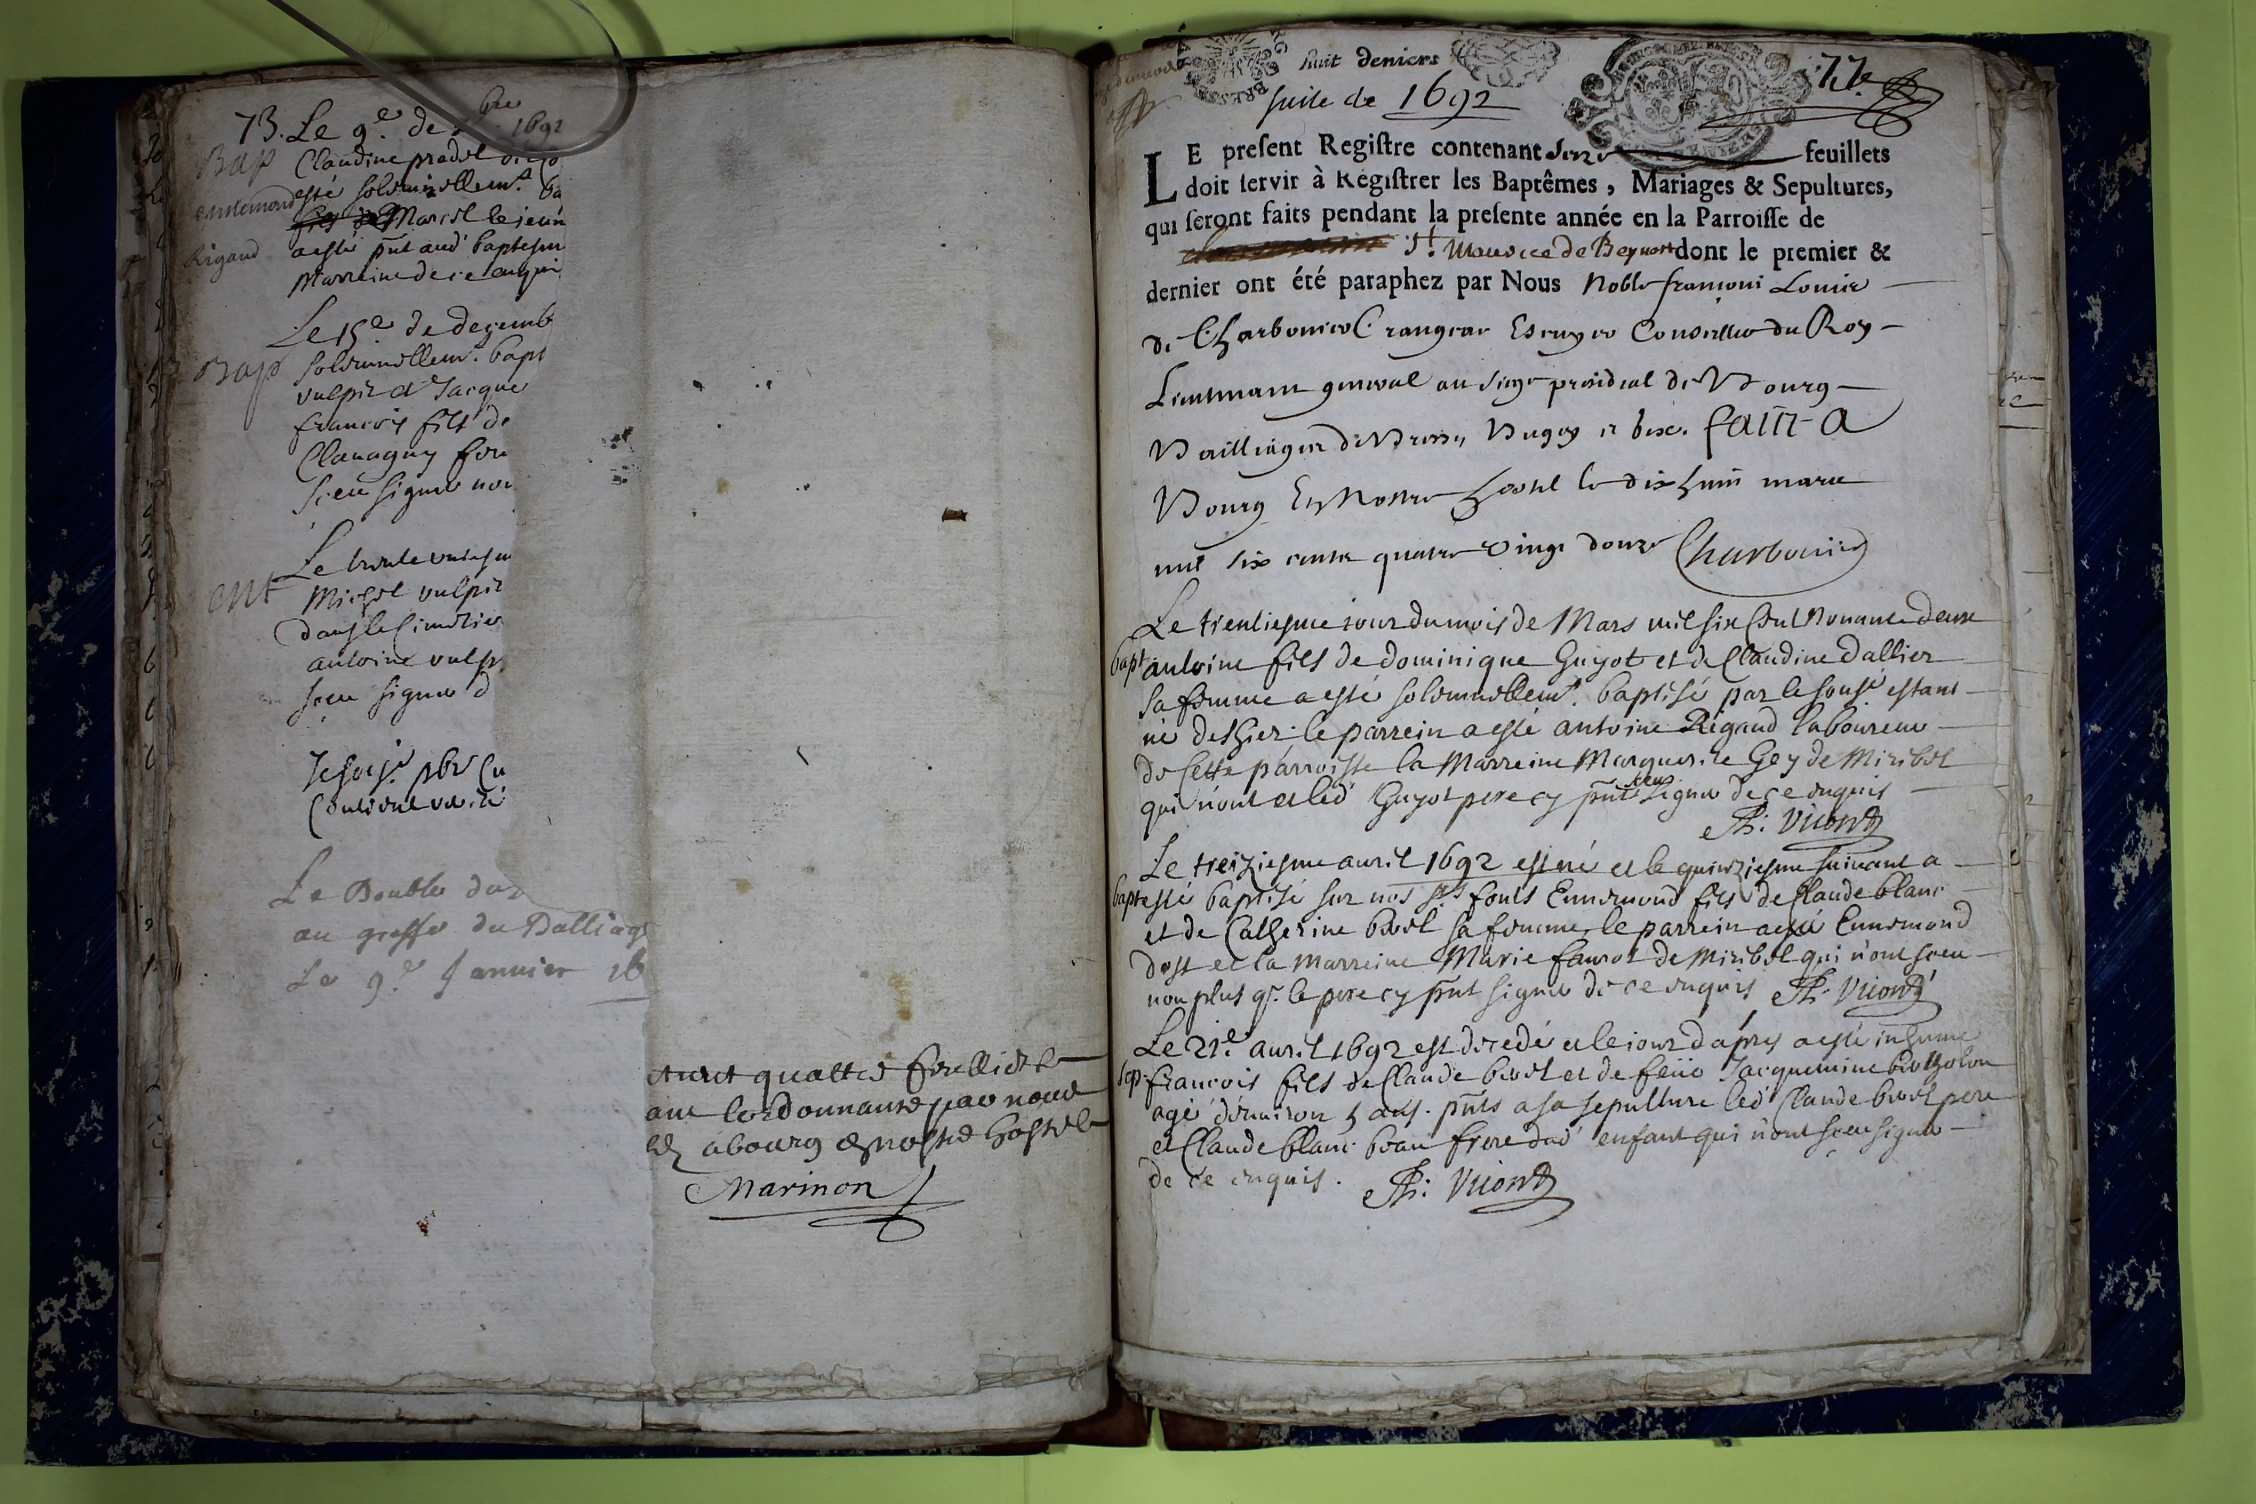 73. Le 9e. de 1692
Bap Claudine pradel
Ennemond esté solemnellemt. ba
fils de Marcel le jeun
Rigaud a esté pnt aud' baptesm
Marreine de ce enqui
Le 15e de decemb
Bap solemnellemt. bapt
vulpis et Jacque
francois fils de
Clauagny
sceu signer non
Le trente uniesm
ent Michel vulpis
dans le Cimetier
antoine vulp
sceu signer d
Je sousé. pbre Cu
Contient verité
Le Double du
au greffe du Balliage
Le 9.e Januier 16
quattre feullietz
lordonnance par nous
a bourg en nostre hostel
Marinon
huit deniers
suite de 1692
77e.
LE present Registre contenant seize feuillets
doit servir à Régistrer les Baptêmes, Mariages & Sepultures,
qui seront faits pendant la presente année en la Parroisse de
St. Maurice de Beynost dont le premier &
dernier ont été paraphez par Nous Noble francois Louis
de Charbonier Crangeac Escuyer Conseiller du Roy
Lieutenant general au siege presidial de Bourg
Bailliages de Bresse, Bugey et Gex. fait a
Bourg En Nostre hostel le dix huit mars
mil six cents quatre vingt douze Charbonier
Le trentiesme iour du mois de Mars mil six Cent Nonante deux
bapt antoine fils de dominique Guyot et de Claudine dallier
sa femme a esté solemnellemt. baptisé par le sousé estant
né deshier. le parrein a esté antoine Rigaud laboureur
de Cette parroisse la Marreine Marguerite Gey de Miribel
qui n'ont et led' Guyot pere cy pnt sceu signer de ce enquis
Ph: Vicond
Le treiziesme auril 1692 est né et le quinziesme suiuant a
bapt esté baptisé sur nos sts fonts Ennemond fils de Claude blanc
et de Catherine bvel sa femme, le parrein a esté Ennemond
dost et la marreine Marie faurot de Miribel qui n'ont sceu
non plus q. le pere cy pnt signer de ce enquis Ph: Vicond
Le 21e auril 1692 est decedé et le iour d'apres a esté inhumé
sep. francois fils de Claude bvel et de feüe Jacquemine bertholon
agé d'enuiron 5 ans. pnts a sa sepulture led' Claude bvel pere
et Claude blanc beau frere dud' enfant qui n'ont sceu signer
de ce enquis. Ph: Vicond